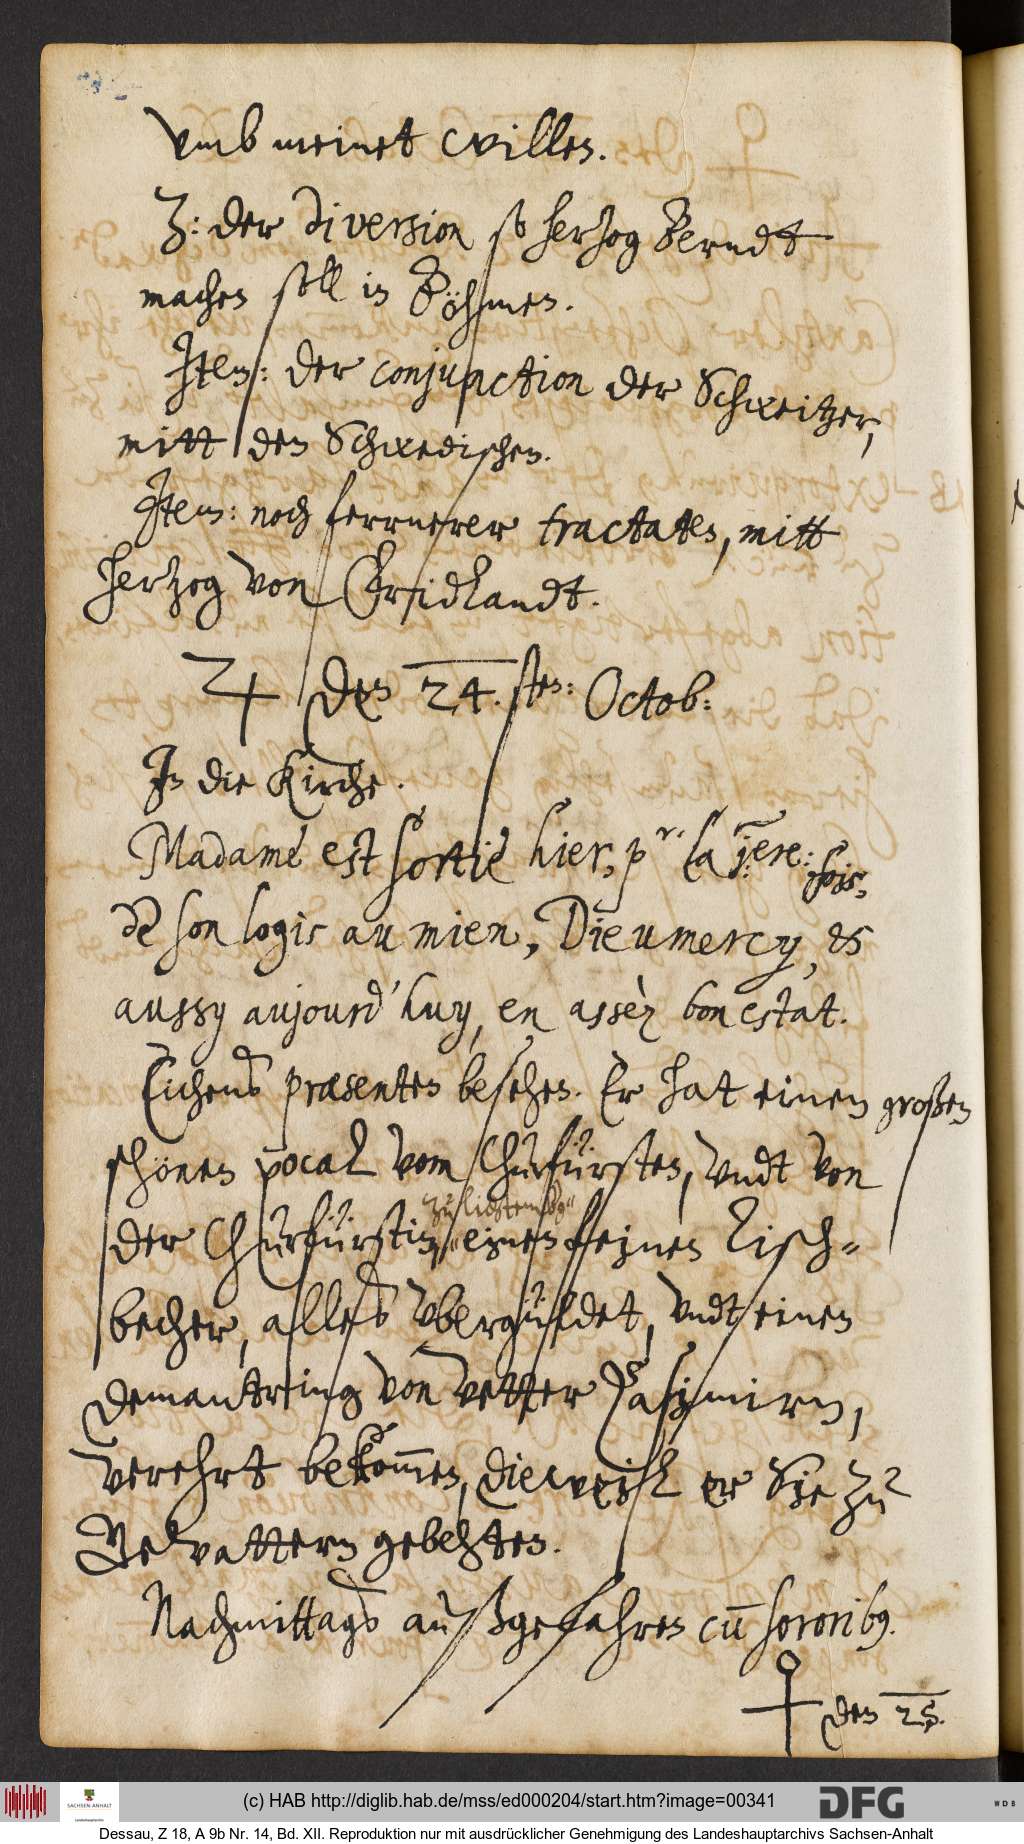 umb meinet willen.
Z: der diversion so herzog Berndt
machen soll in Böhmen.
Item: der conjunction der Schweitzer,
mitt den Schwedischen.
Item: noch fernerer tractaten, mitt
herzog von Fridlandt.
♃ den 24. sten: Octob:
In die Kirche.
Madame est sortie hier, pr. la j:ere: fois,
de son logis au mien, Dieu mercy, &
aussy aujourd'huy, en assèz bon estat.
Eichens præsenten besehen. Er hat einen großen
schönen pocal vom Churfürsten, undt von
der Churfürstin, einen feinen Tisch-
becher, alles ubergüldet, undt einen
demantring von Vetter Casimirn,
verehrt bekommen, dieweil er Sie zu
Gevattern gebehten.
Nachmittags außgefahren cū sororib9.
♀ den 25.
(c) HAB http://diglib.hab.de/mss/ed000204/start.htm?image=00341
SACHSEN-ANHALT
Landeshauptarchiv
DFG
WDB
Dessau, Z 18, A 9b Nr. 14, Bd. XII. Reproduktion nur mit ausdrücklicher Genehmigung des Landeshauptarchivs Sachsen-Anhalt